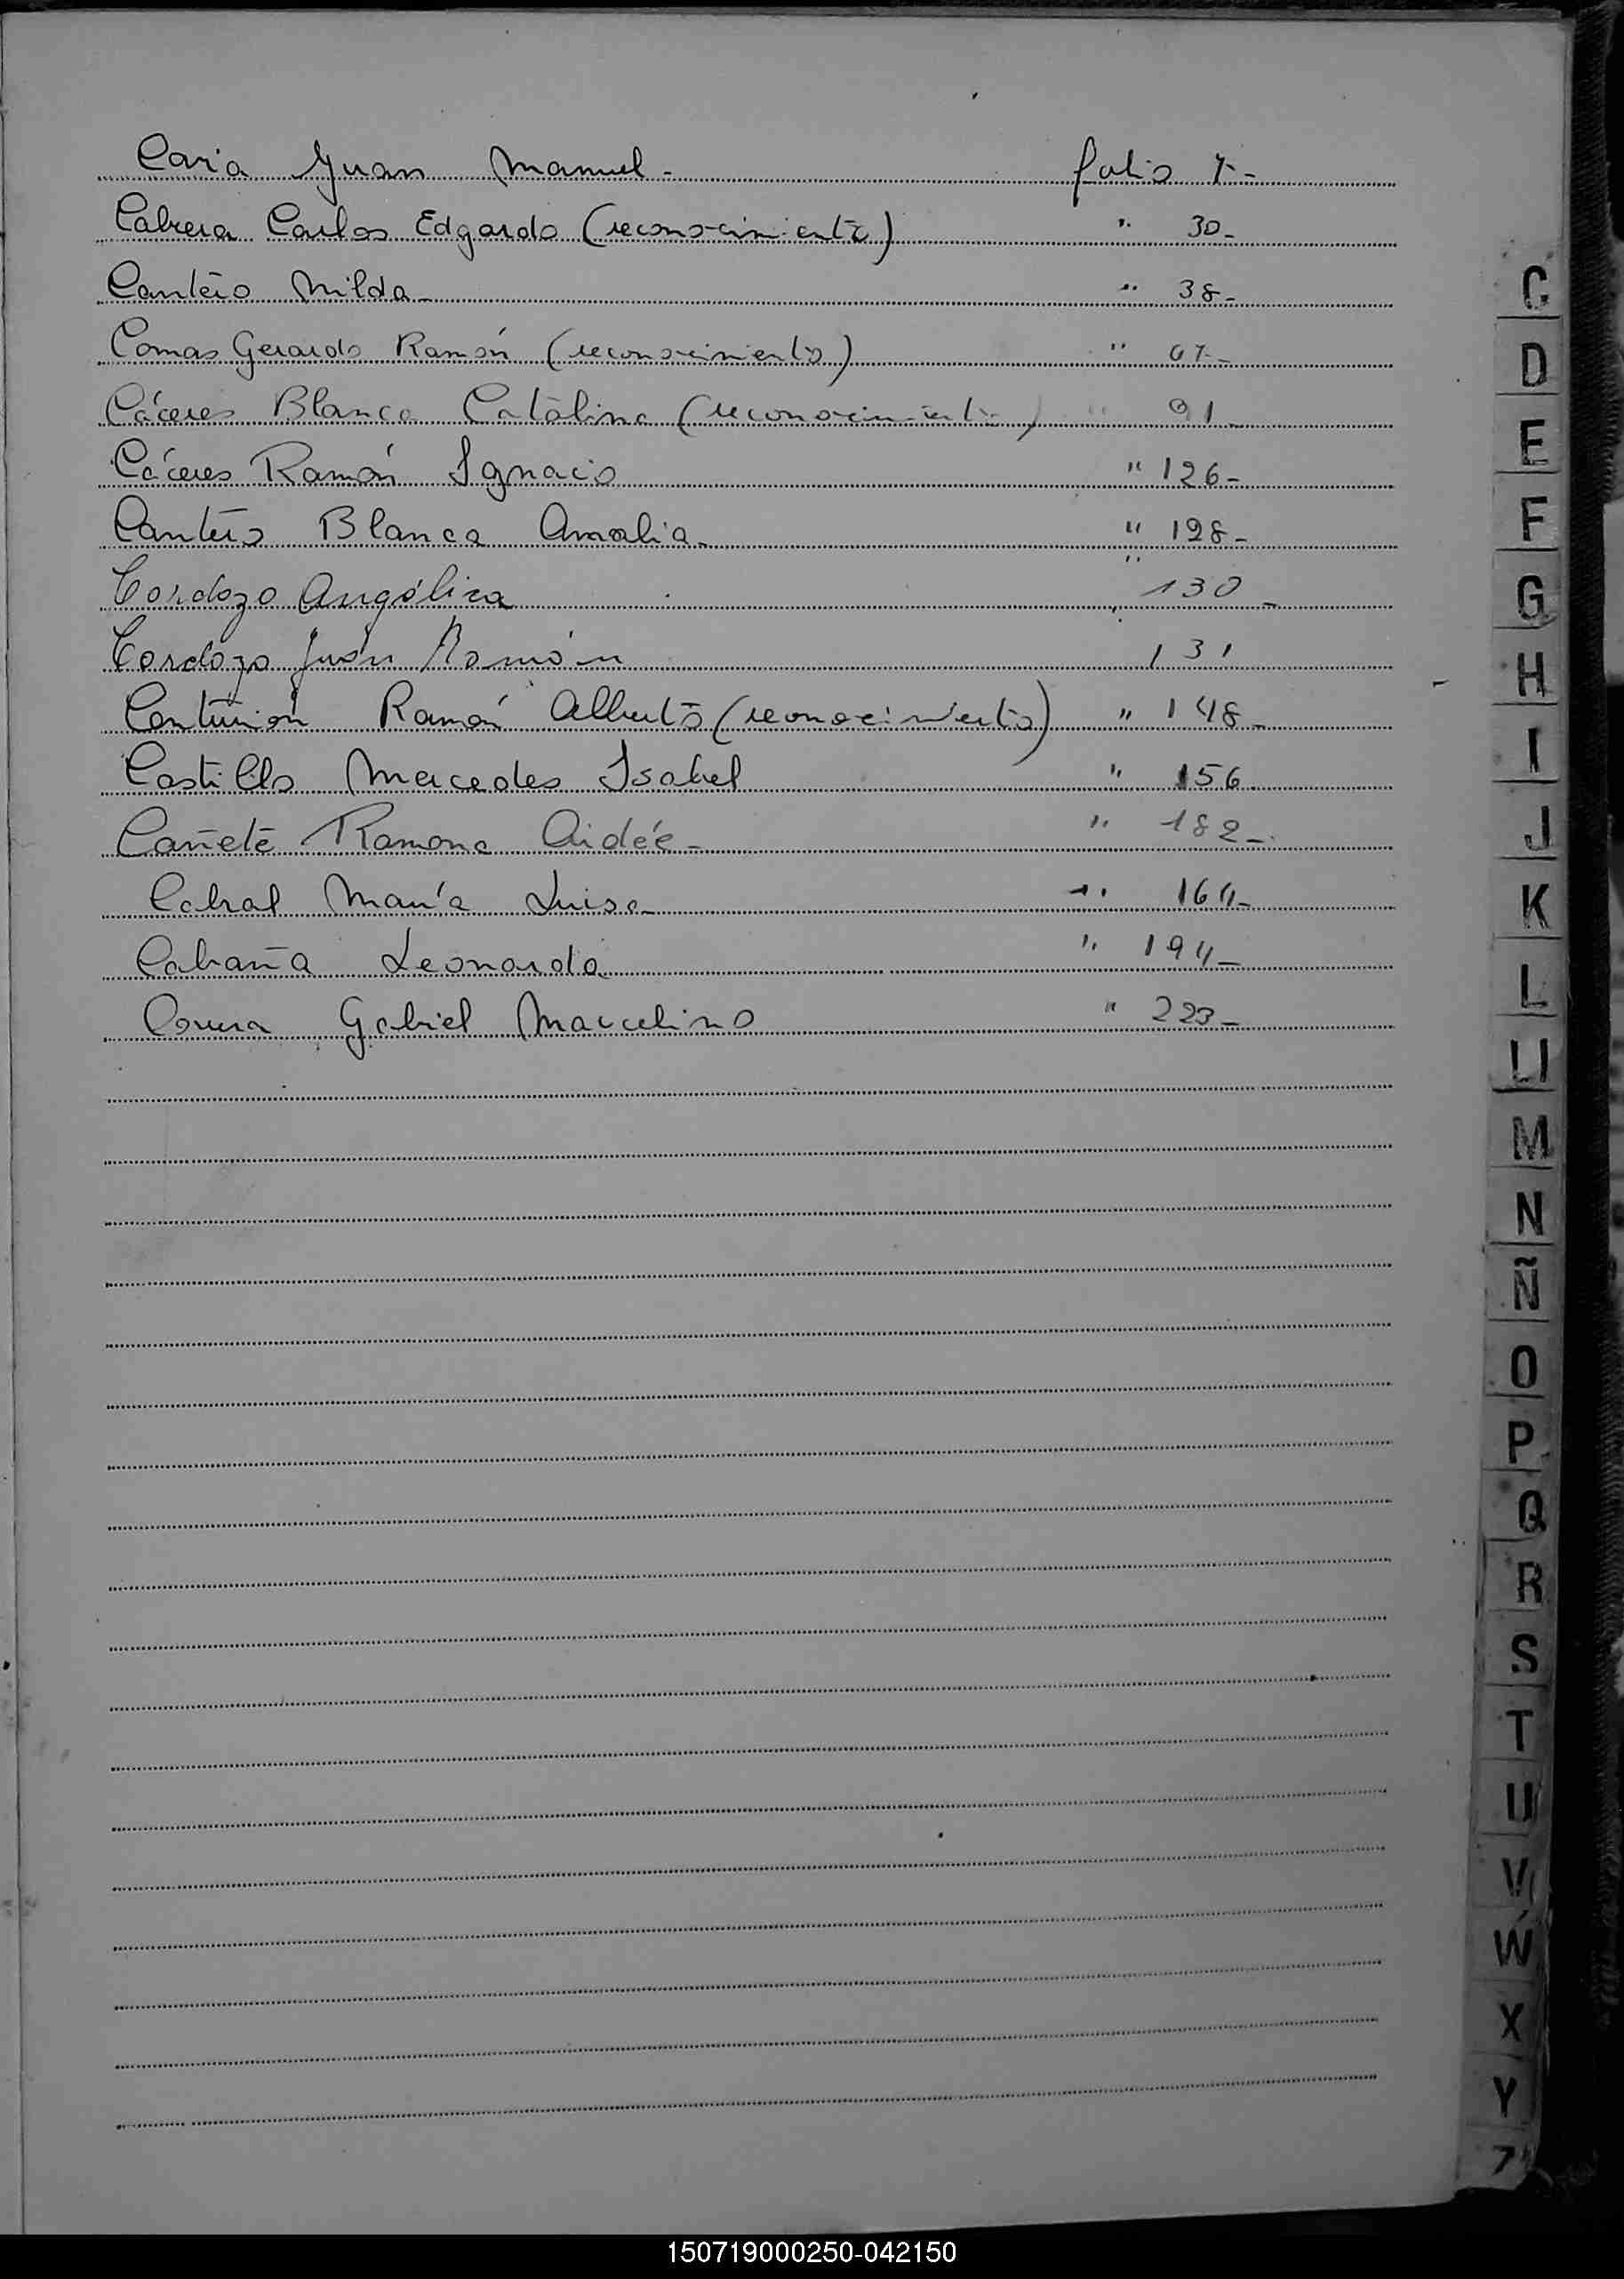 Caria Juan Manuel - folio 7-
Cabrera Carlos Edgardo (reconocimiento) " 30-
Cantero Nilda - " 38-
Comas Gerardo Ramón (reconocimiento) " 67-
Cáceres Blanca Catalina (reconocimiento) " 91-
Cáceres Ramón Ignacio " 126-
Cantero Blanca Amalia - " 128-
Cordozo Angélica " 130-
Cordozo Juan Ramón 131
Centurión Ramón Alberto (reconocimiento) " 148-
Castillo Mercedes Isabel " 156
Cañete Ramona Aidée - " 182-
Cabral María Luisa - " 164-
Cabaña Leonarda " 194-
Gabriel Marcelino " 223-
C
D
E
F
G
H
I
J
K
L
LL
M
N
Ñ
O
P
Q
R
S
T
U
V
W
X
Y
Z
150719000250-042150